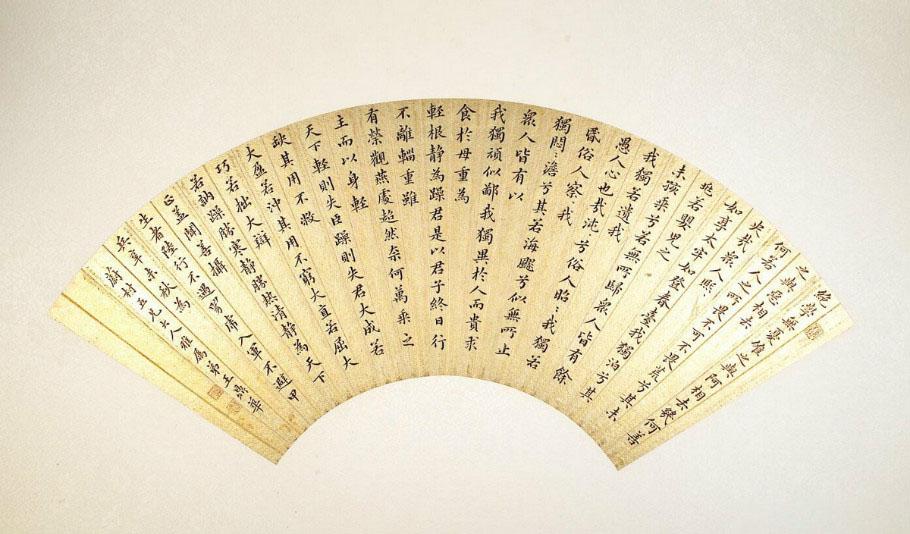 絶學無憂唯之與阿相去幾何善
之與惡相去
何若人之所畏不可不畏荒兮其未
央哉衆人熙〻
如享太牢如登春臺我獨泊兮其未
兆若嬰兒之
未孩乘兮若無所歸衆人皆有餘
我獨若遺我
愚人心也哉沌兮俗人昭〻我獨若
昏俗人察我
獨悶〻澹兮其若海飂兮似無所止
衆人皆有以
我獨頑似鄙我獨異於人而貴求
食於母重為
輕根静為躁君是以君子終日行
不離輜重雖
有榮觀燕處超然奈何萬乘之
主而以身輕
天下輕則失臣躁則失君大成若
缺其用不敝
大盈若沖其用不窮大直若屈大
巧若拙大辯
若訥躁勝寒静勝熱清静為天下
正蓋聞善攝
生者陸行不遇兕虎入軍不避甲
兵辛未秋為
蔚村五兄大人雅屬弟王